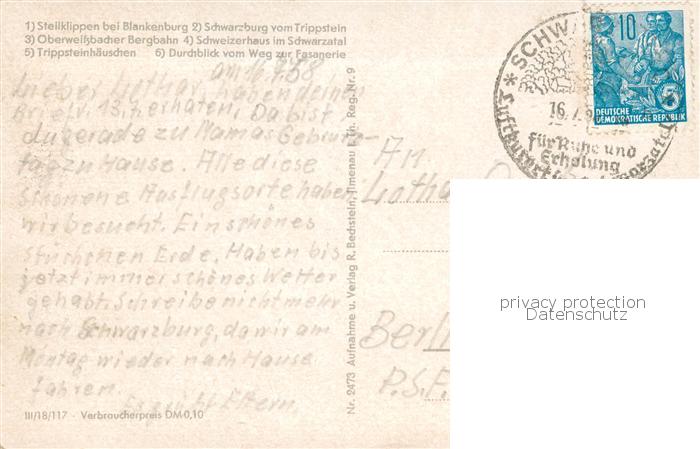 1) Steilklippen bei Blankenburg 2) Schwarzburg vom Trippstein
3) Oberweißbacher Bergbahn 4) Schweizerhaus im Schwarzatal
5) Trippsteinhäuschen 6) Durchblick vom Weg zur Fasanerie
am 16.7.58
haben deinen
Brief v. 13.7. erhalten. Da bist
du gerade zu Mamas Geburts-
tag zu Hause. Alle diese
schönene Ausflugsorte haben
wir besucht. Ein schönes
Stückchen Erde. Haben bis
jetzt immer schönes Wetter
gehabt. Schreibe nicht mehr
nach Schwarzburg, da wir am
Montag wieder nach Hause
fahren.
Es grüßt Eltern.
III/18/117 - Verbraucherpreis DM 0,10
Nr. 2473 Aufnahme u. Verlag R. Bechstein, Ilmenau i. Th. Reg. Nr. 9
An
Lotha
Berli
P.S.F.
SCHWA
16.7.5
für Ruhe und
Erholung
10
5
DEUTSCHE
DEMOKRATISCHE REPUBLIK
privacy protection
Datenschutz